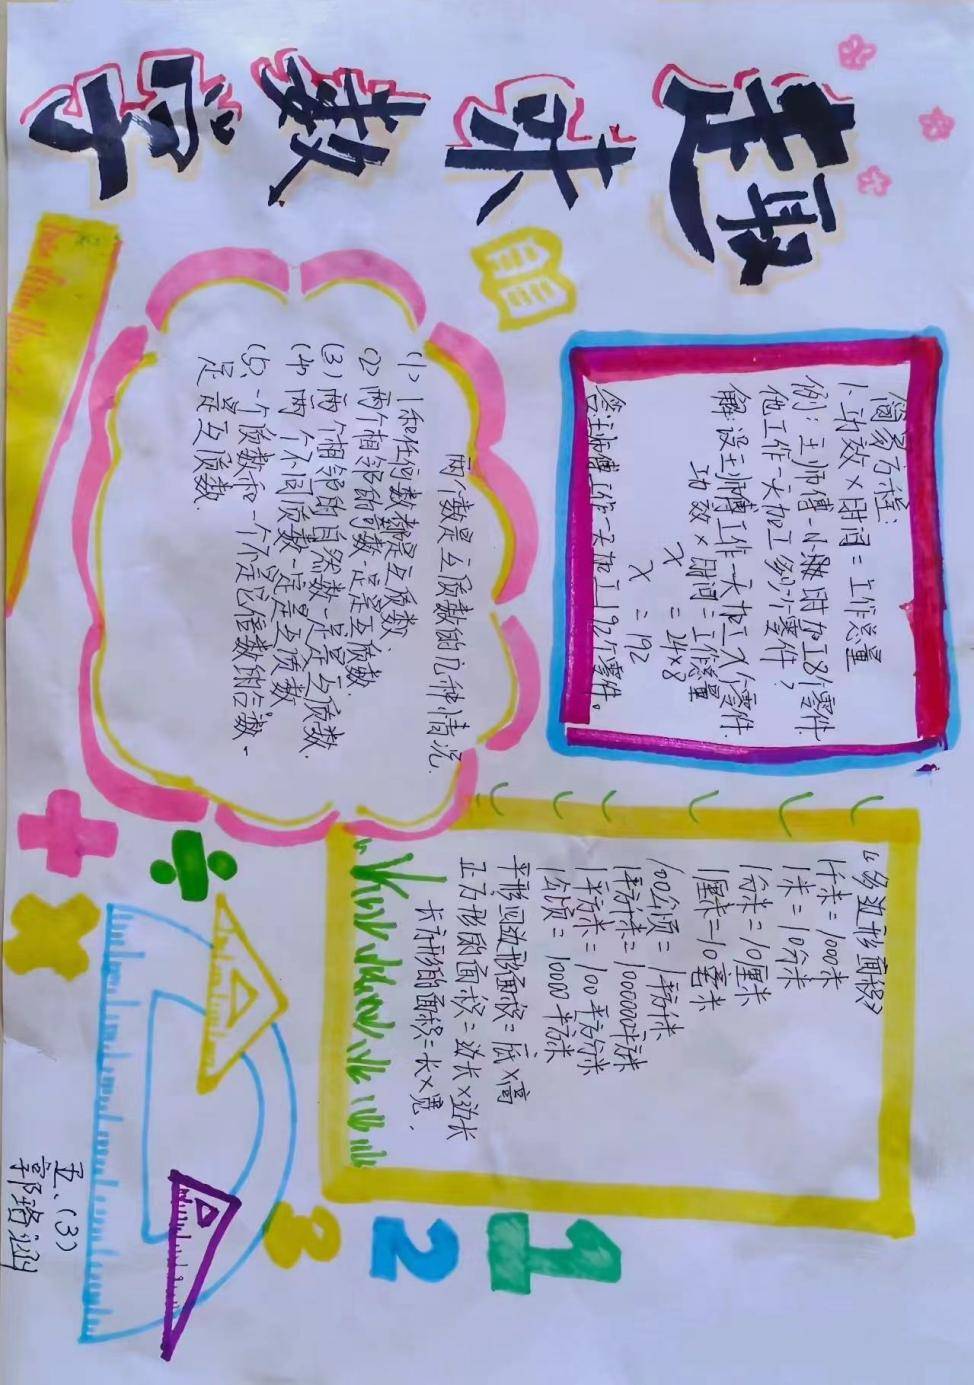 趣味数字
简易方程:
1、功效×时间=工作总量
例:王师傅一小时加工8个零件
他工作一天加工多少个零件?
解设王师傅工作一天加工X个零件
功效×时间=工作总量
X=24×8
X=192
答:王师傅工作一天加工192个零件。
两个数是互质数的几种情况.
(1)1和任何数都是互质数;
(2)两个相邻的奇数一定是互质数
(3)两个相邻的自然数一定是互质数.
(4)两个不同质数一定是互质数
(5)一个质数和一个不是它倍数的合数一
定是互质数.
《多边形面积》
1千米=1000米
1米=10分米
1分米=10厘米
1厘米=10毫米
100公顷=1平方千米
1平方千米=1000000平方米
1平方米=100平方分米
1公顷=10000平方米
平形四边形面积=底×高
正方形的面积=边长×边长
长方形的面积=长×宽.
1
2
3
五、(3)